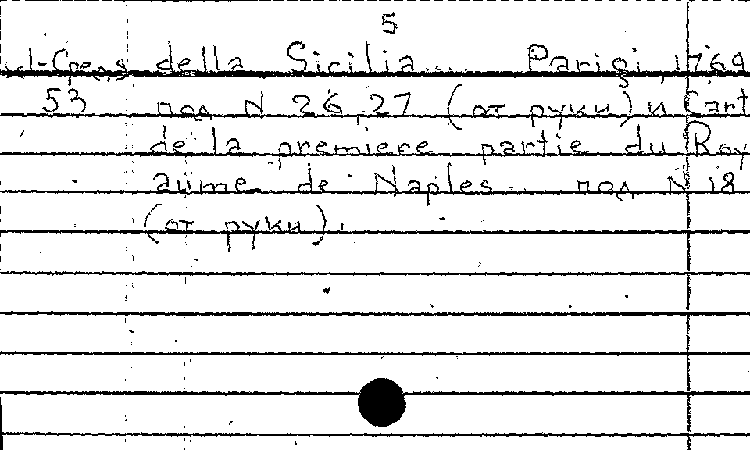 5
della Sicilia... Parigi, 1769
53 под N 26,27 (от руки) и Cart
de la premiere partie du Roy
aume de Naples... под N 18
(от руки).